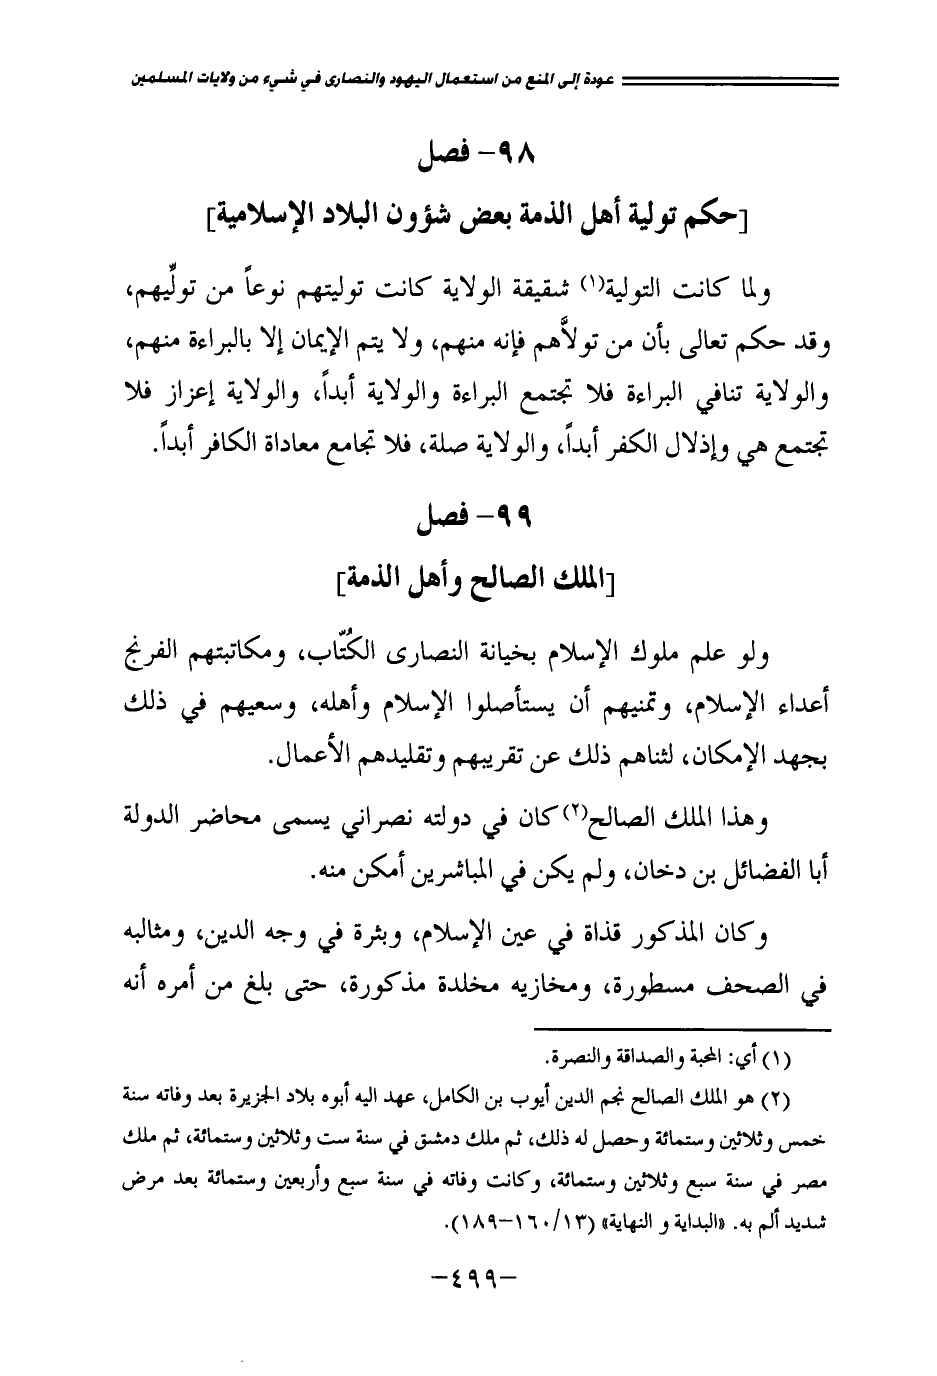 عودة إلى المنع من استعمال اليهود والنصارى في شيء من ولايات المسلمين
٩٨- فصل
[حكم تولية أهل الذمة بعض شؤون البلاد الإسلامية]
ولما كانت التولية(١) شقيقة الولاية كانت توليتهم نوعاً من تولِّيهم،
وقد حكم تعالى بأن من تولاَّهم فإنه منهم، ولا يتم الإيمان إلا بالبراءة منهم،
والولاية تنافي البراءة فلا تجتمع البراءة والولاية أبداً، والولاية إعزاز فلا
تجتمع هي وإذلال الكفر أبداً، والولاية صلة، فلا تجامع معاداة الكافر أبداً.
٩٩- فصل
[الملك الصالح وأهل الذمة]
ولو علم ملوك الإسلام بخيانة النصارى الكُتّاب، ومكاتبتهم الفرنج
أعداء الإسلام، وتمنيهم أن يستأصلوا الإسلام وأهله، وسعيهم في ذلك
بجهد الإمكان، لثناهم ذلك عن تقريبهم وتقليدهم الأعمال.
وهذا الملك الصالح(٢) كان في دولته نصراني يسمى محاضر الدولة
أبا الفضائل بن دخان، ولم يكن في المباشرين أمكن منه.
وكان المذكور قذاة في عين الإسلام، وبثرة في وجه الدين، ومثالبه
في الصحف مسطورة، ومخازيه مخلدة مذكورة، حتى بلغ من أمره أنه
(١) أي: المحبة والصداقة والنصرة.
(٢) هو الملك الصالح نجم الدين أيوب بن الكامل، عهد اليه أبوه بلاد الجزيرة بعد وفاته سنة
خمس وثلاثين وستمائة وحصل له ذلك، ثم ملك دمشق في سنة ست وثلاثين وستمائة، ثم ملك
مصر في سنة سبع وثلاثين وستمائة، وكانت وفاته في سنة سبع وأربعين وستمائة بعد مرض
شديد ألم به. «البداية و النهاية» (١٣/١٦٠-١٨٩).
-٤٩٩-